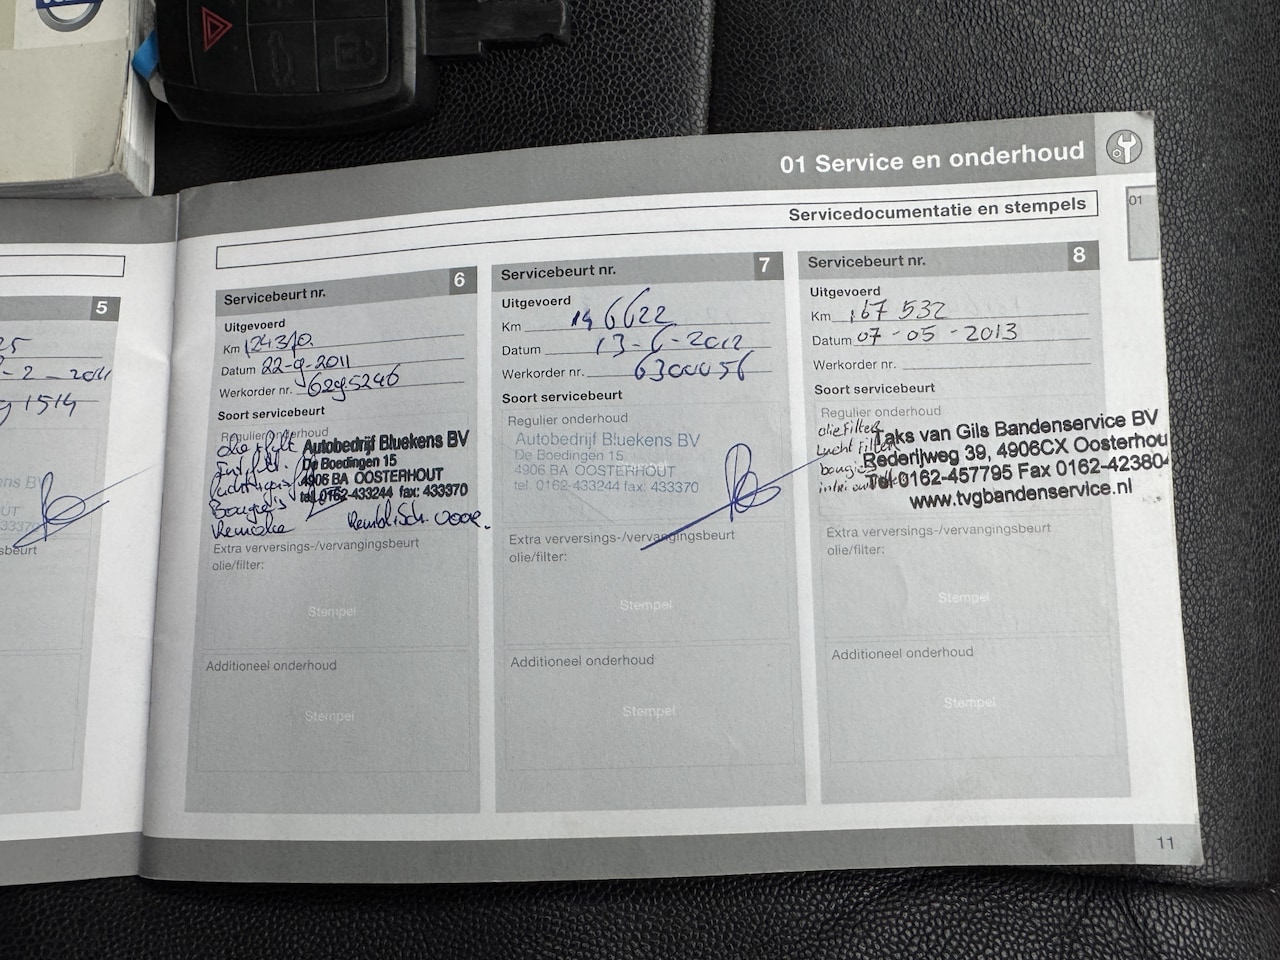 01 Service en onderhoud
01
Servicedocumentatie en stempels
5
2011
1514
Servicebeurt nr. 6
Uitgevoerd
Km 124310
Datum 22-9-2011
Werkorder nr. 6295246
Soort servicebeurt
Regulier onderhoud
Autobedrijf Bluekens BV
De Boedingen 15
4906 BA OOSTERHOUT
tel. 0162-433244 fax: 433370
Bougies
Remblisch. voor.
Extra verversings-/vervangingsbeurt
olie/filter:
Stempel
Additioneel onderhoud
Stempel
Servicebeurt nr. 7
Uitgevoerd
Km 146622
Datum 13-6-2012
Werkorder nr. 6300056
Soort servicebeurt
Regulier onderhoud
Autobedrijf Bluekens BV
De Boedingen 15
4906 BA OOSTERHOUT
tel. 0162-433244 fax: 433370
Extra verversings-/vervangingsbeurt
olie/filter:
Stempel
Additioneel onderhoud
Stempel
Servicebeurt nr. 8
Uitgevoerd
Km 167 532
Datum 07-05-2013
Werkorder nr.
Soort servicebeurt
Regulier onderhoud
olie Filter
Lucht Filter
bougies
Taks van Gils Bandenservice BV
Rederijweg 39, 4906CX Oosterhou
Tel 0162-457795 Fax 0162-423804
www.tvgbandenservice.nl
Extra verversings-/vervangingsbeurt
olie/filter:
Stempel
Additioneel onderhoud
Stempel
11